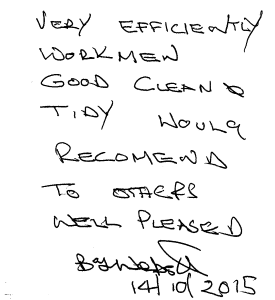 VERY EFFICIENTLY
WORKMEN
GOOD CLEAN &
TIDY WOULD
RECOMEND
TO OTHERS
WELL PLEASED
14/10/2015